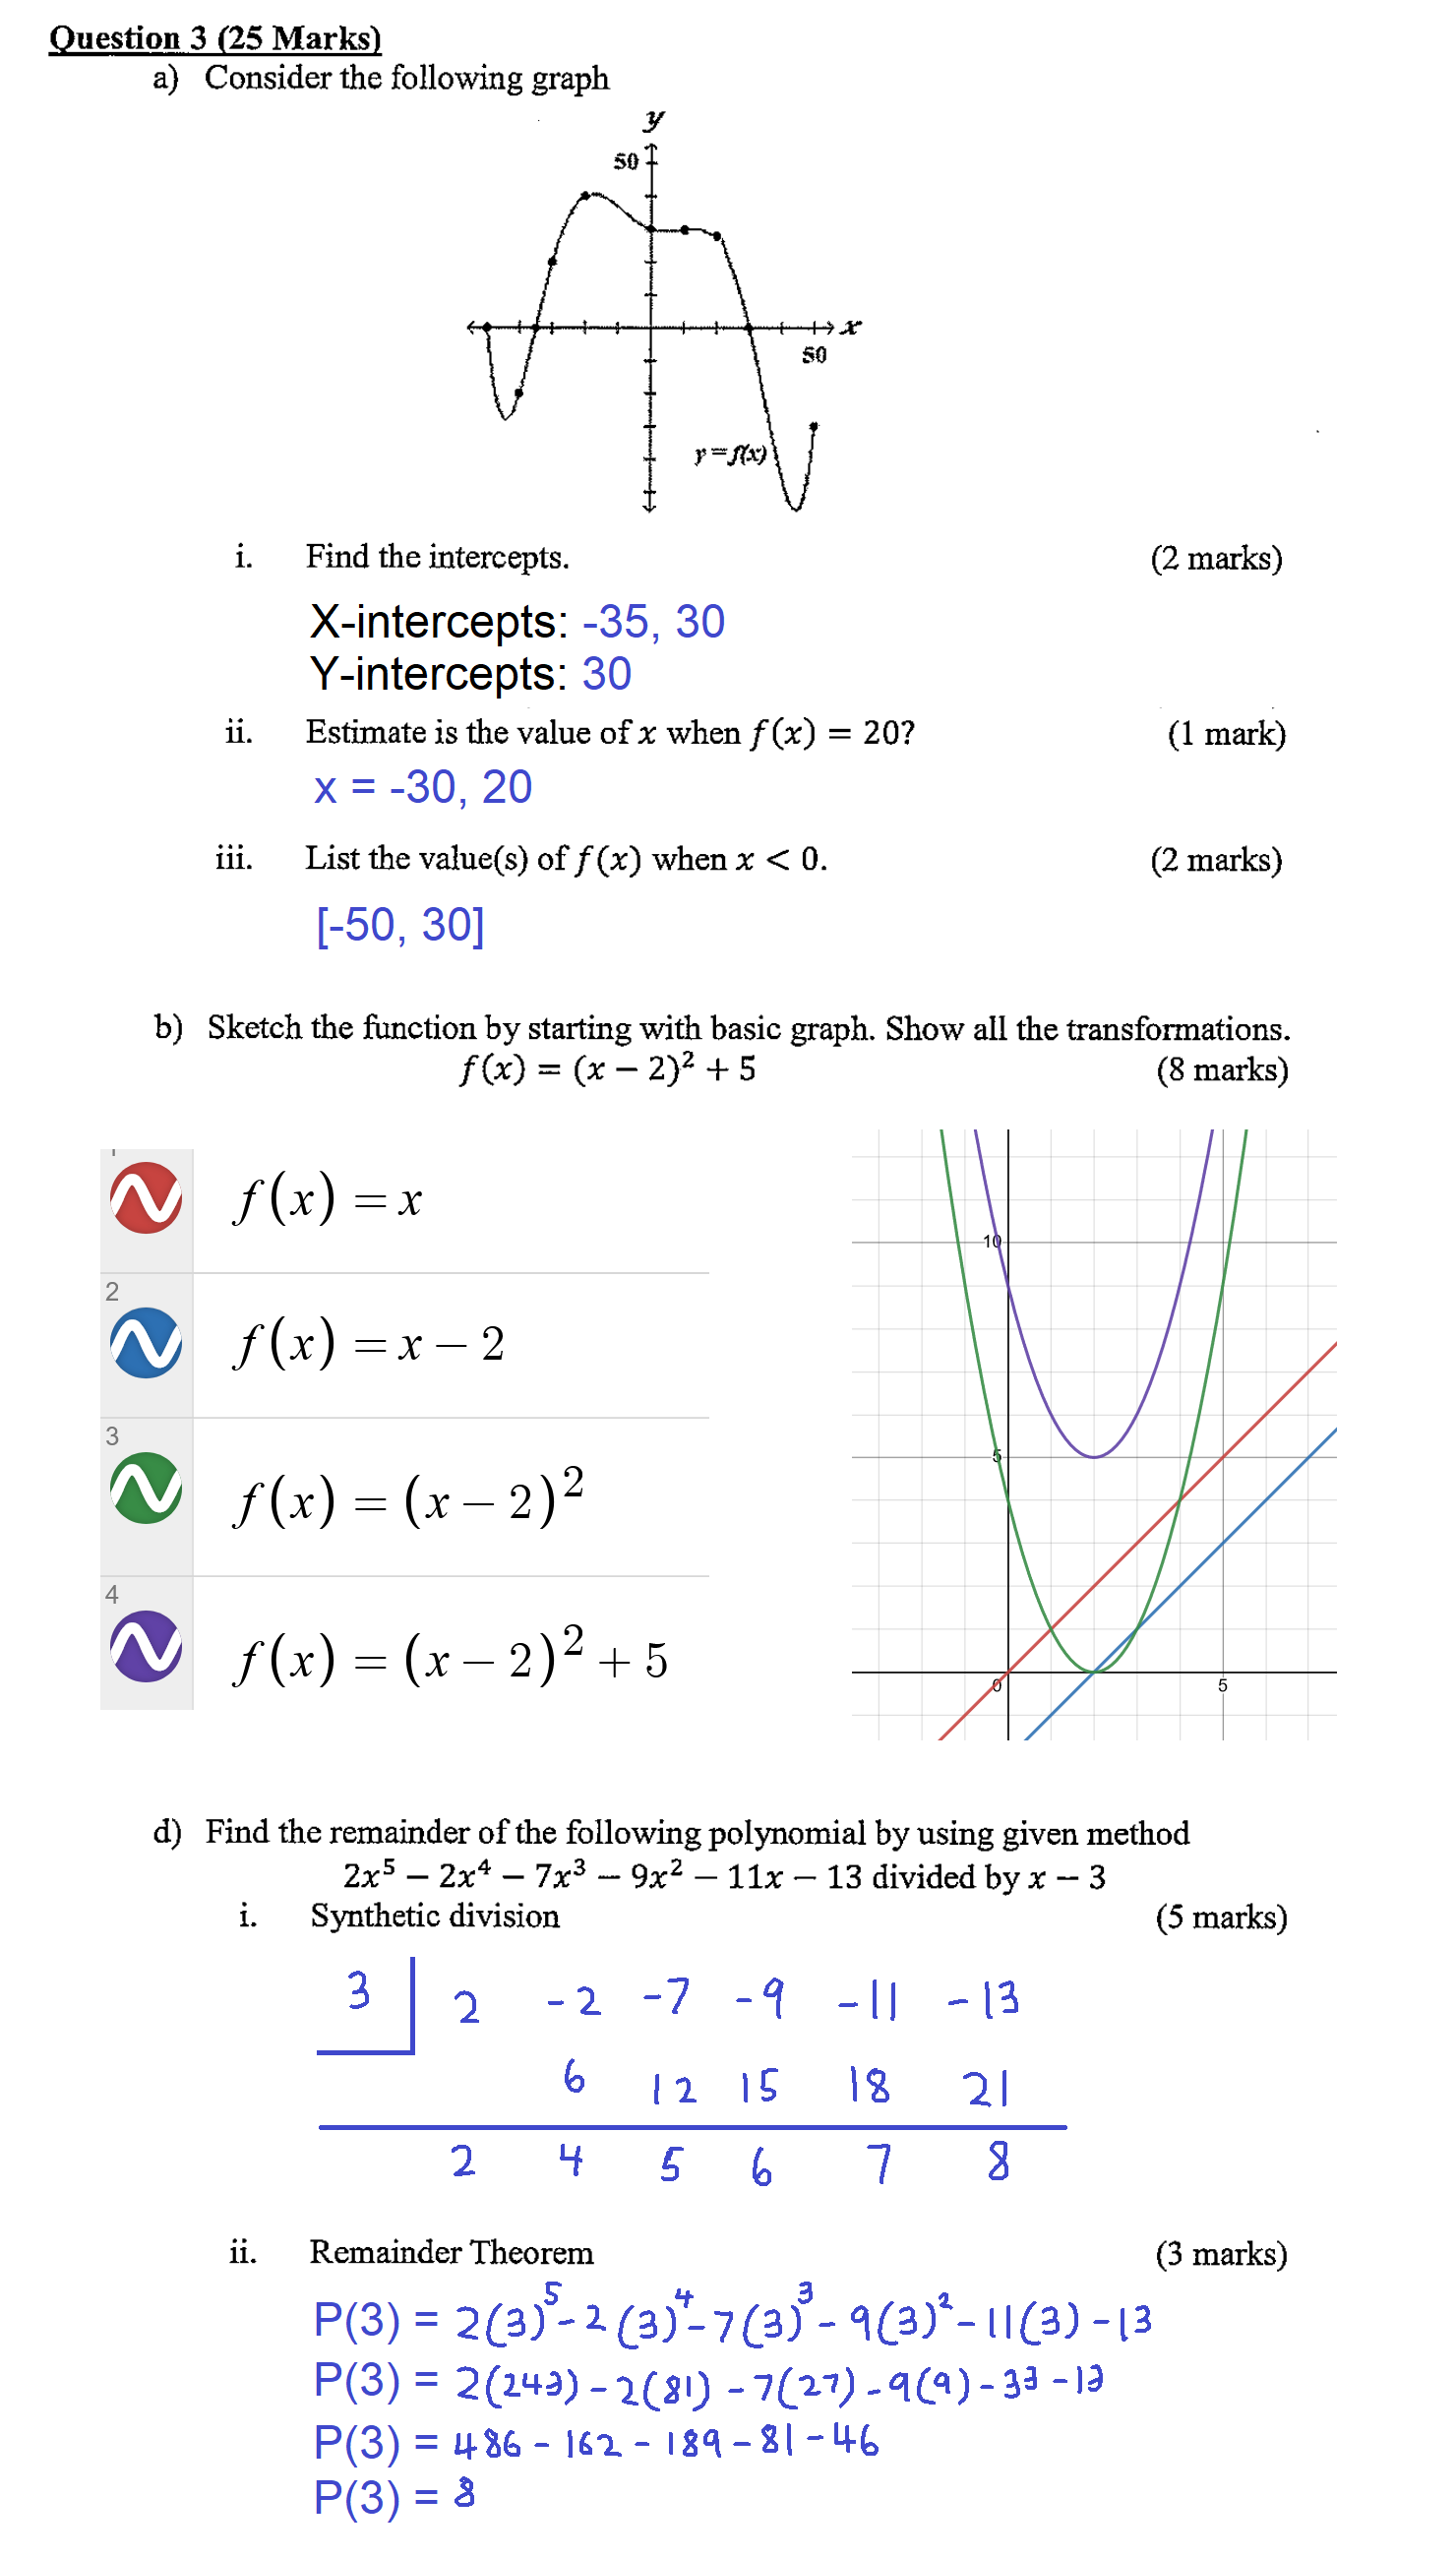 Question 3 (25 Marks)
a) Consider the following graph
y
50
x
50
y = f(x)
i. Find the intercepts. (2 marks)
X-intercepts: -35, 30
Y-intercepts: 30
ii. Estimate is the value of x when f(x) = 20? (1 mark)
x = -30, 20
iii. List the value(s) of f(x) when x < 0. (2 marks)
[-50, 30]
b) Sketch the function by starting with basic graph. Show all the transformations.
f(x) = (x − 2)² + 5 (8 marks)
f(x) = x
2
f(x) = x − 2
3
f(x) = (x − 2)²
4
f(x) = (x − 2)² + 5
10
5
0
5
d) Find the remainder of the following polynomial by using given method
2x⁵ − 2x⁴ − 7x³ − 9x² − 11x − 13 divided by x − 3
i. Synthetic division (5 marks)
3 2 -2 -7 -9 -11 -13
6 12 15 18 21
2 4 5 6 7 8
ii. Remainder Theorem (3 marks)
P(3) = 2(3)⁵-2(3)⁴-7(3)³-9(3)²-11(3)-13
P(3) = 2(243)-2(81)-7(27)-9(9)-33-13
P(3) = 486-162-189-81-46
P(3) = 8